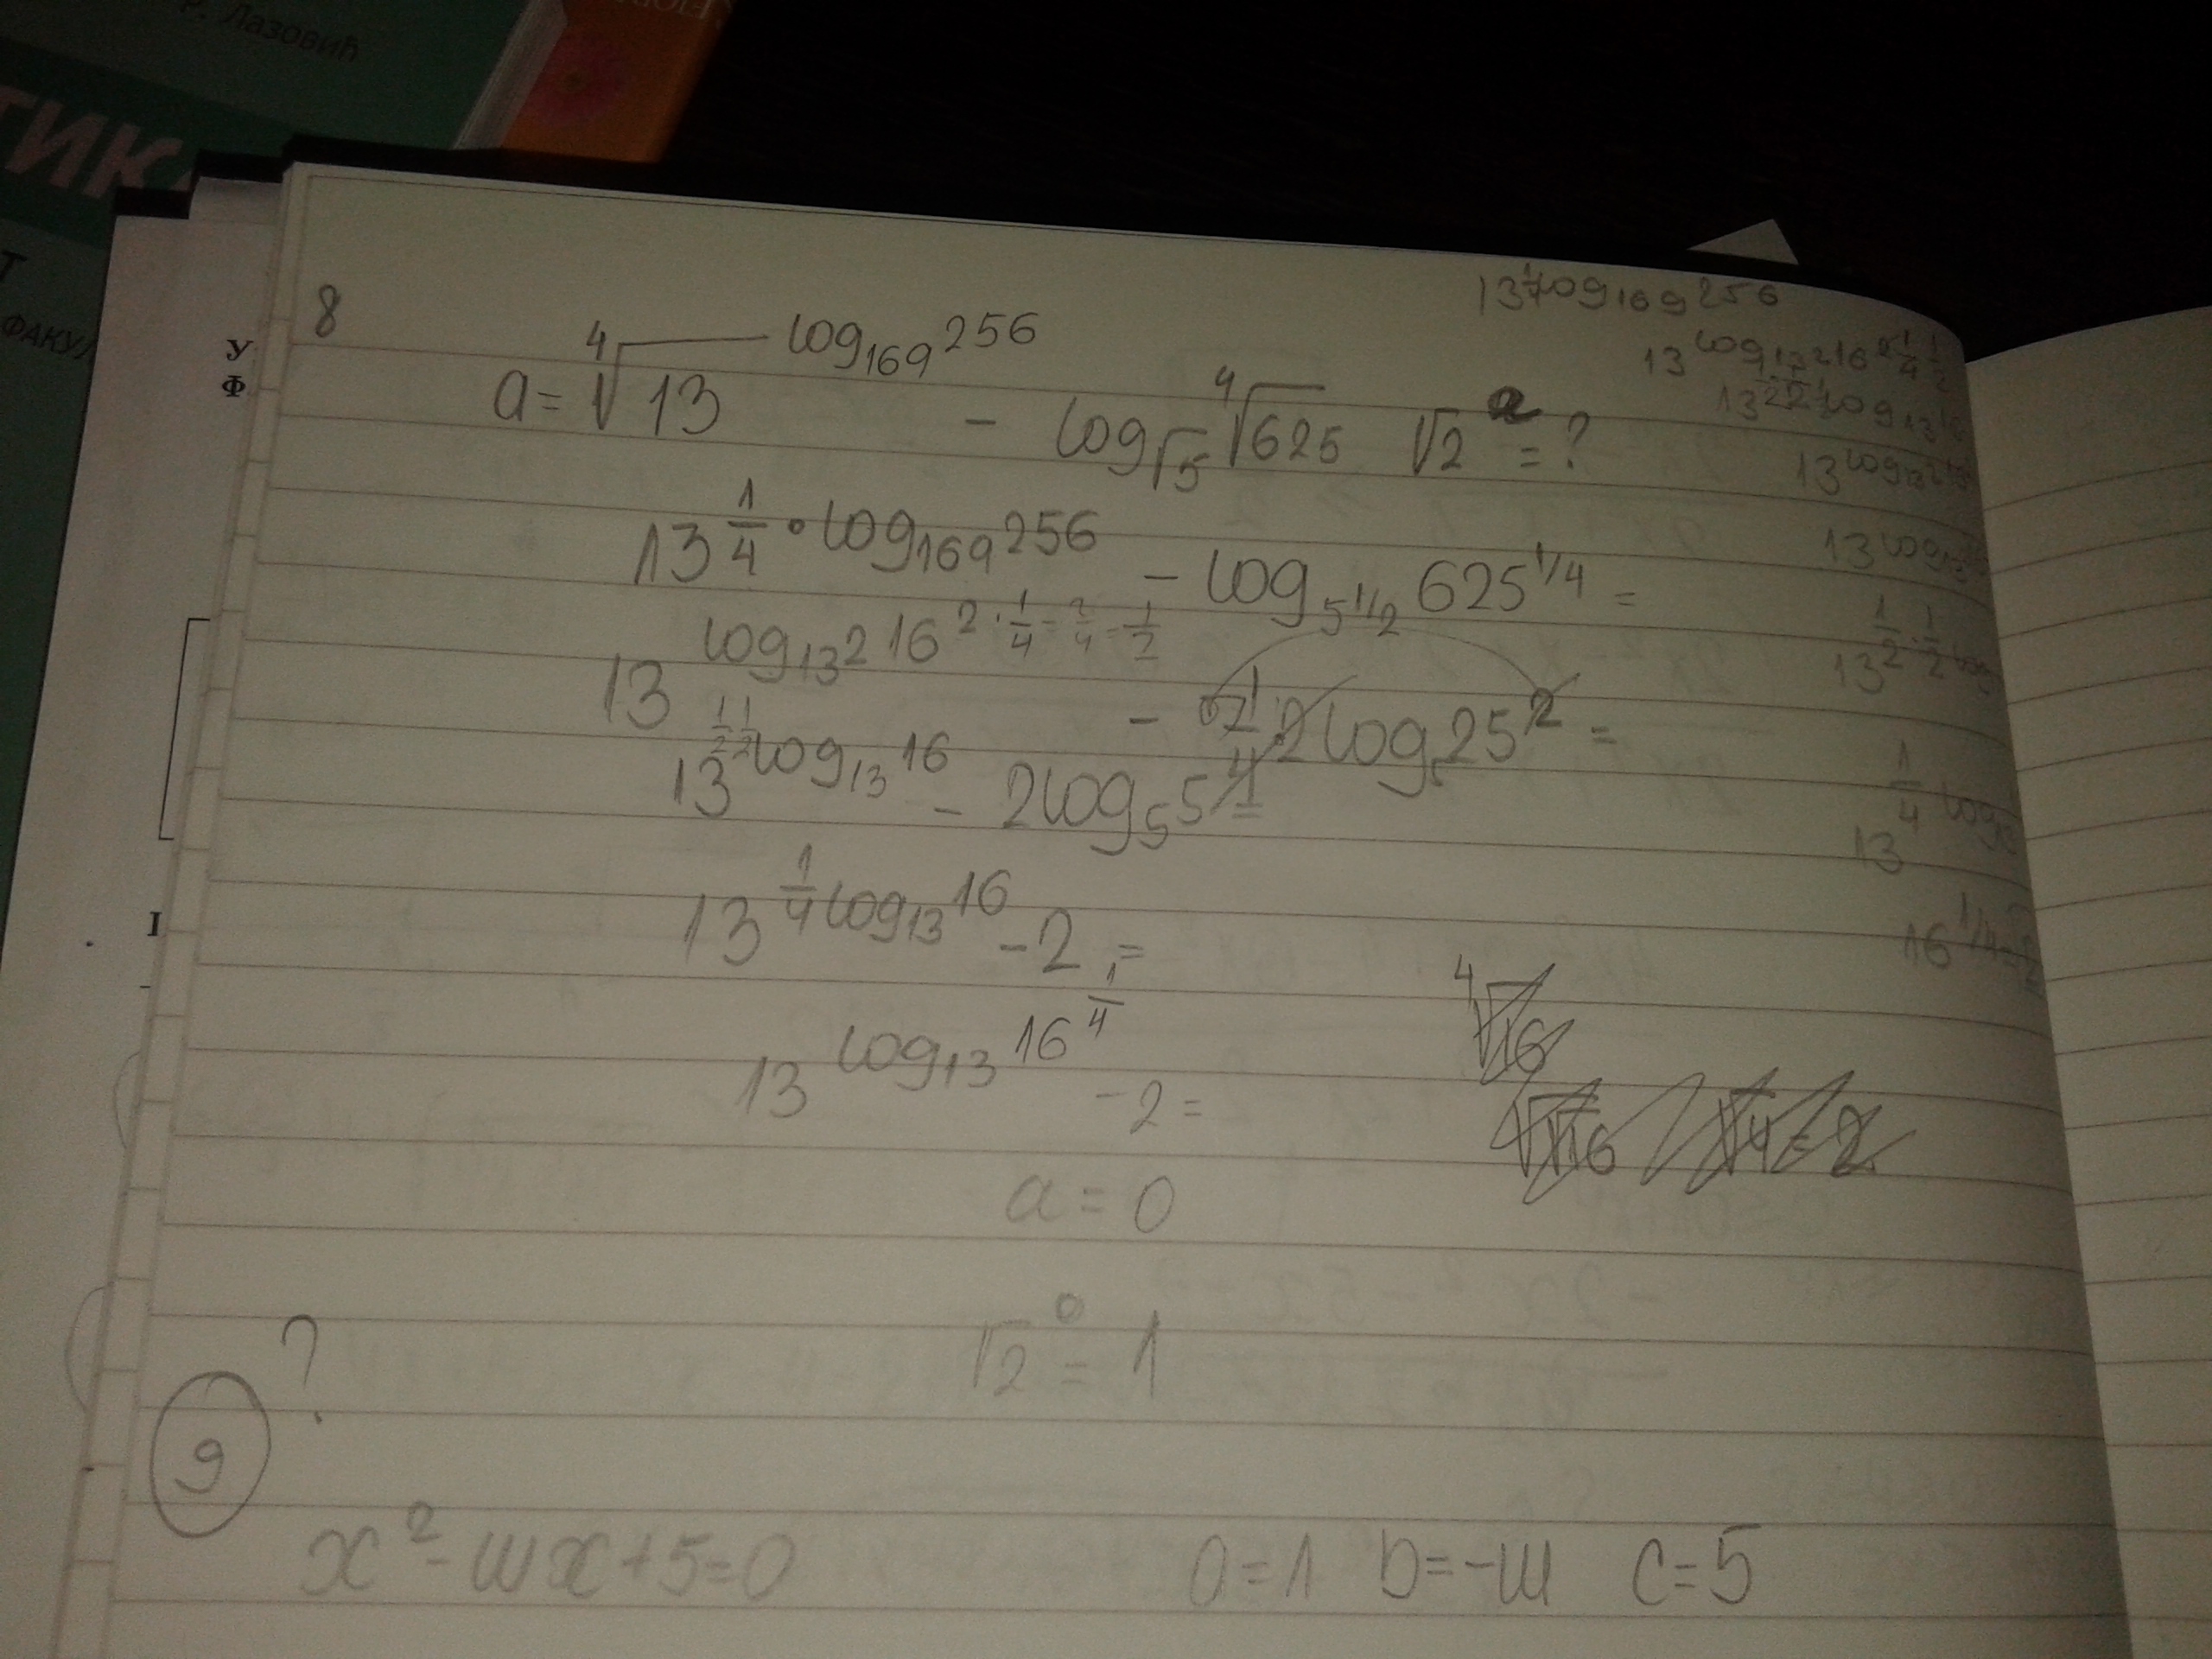 р. Лазовић
ТИК
Т
ФАКУЛ
У
Ф
I
8
a = ⁴√13^(log₁₆₉ 256) − log_√5 ⁴√625 √2^a = ?
13^(1/4 · log₁₆₉ 256) − log_(5^1/2) 625^(1/4) =
13^(log_13² 16^(2·1/4=2/4=1/2)) − 2 1/4 · 2 log₅ 25² =
13^(1/2 1/2 log₁₃ 16) − 2 log₅ 5 =
13^(1/4 log₁₃ 16) − 2 =
13^(log₁₃ 16^(1/4)) − 2 =
a = 0
√2^0 = 1
13^(1/4 log₁₆₉ 256)
13^(log_13² 16^(2 1/4 1/2))
13^(log₁₃
13^(log
13^(1/2 · 1/2 log
13^(1/4 log
16^(1/4) = 2
⁴√16
√√16 √4 = 2
?
9
x² − mx + 5 = 0 a = 1 b = −m c = 5